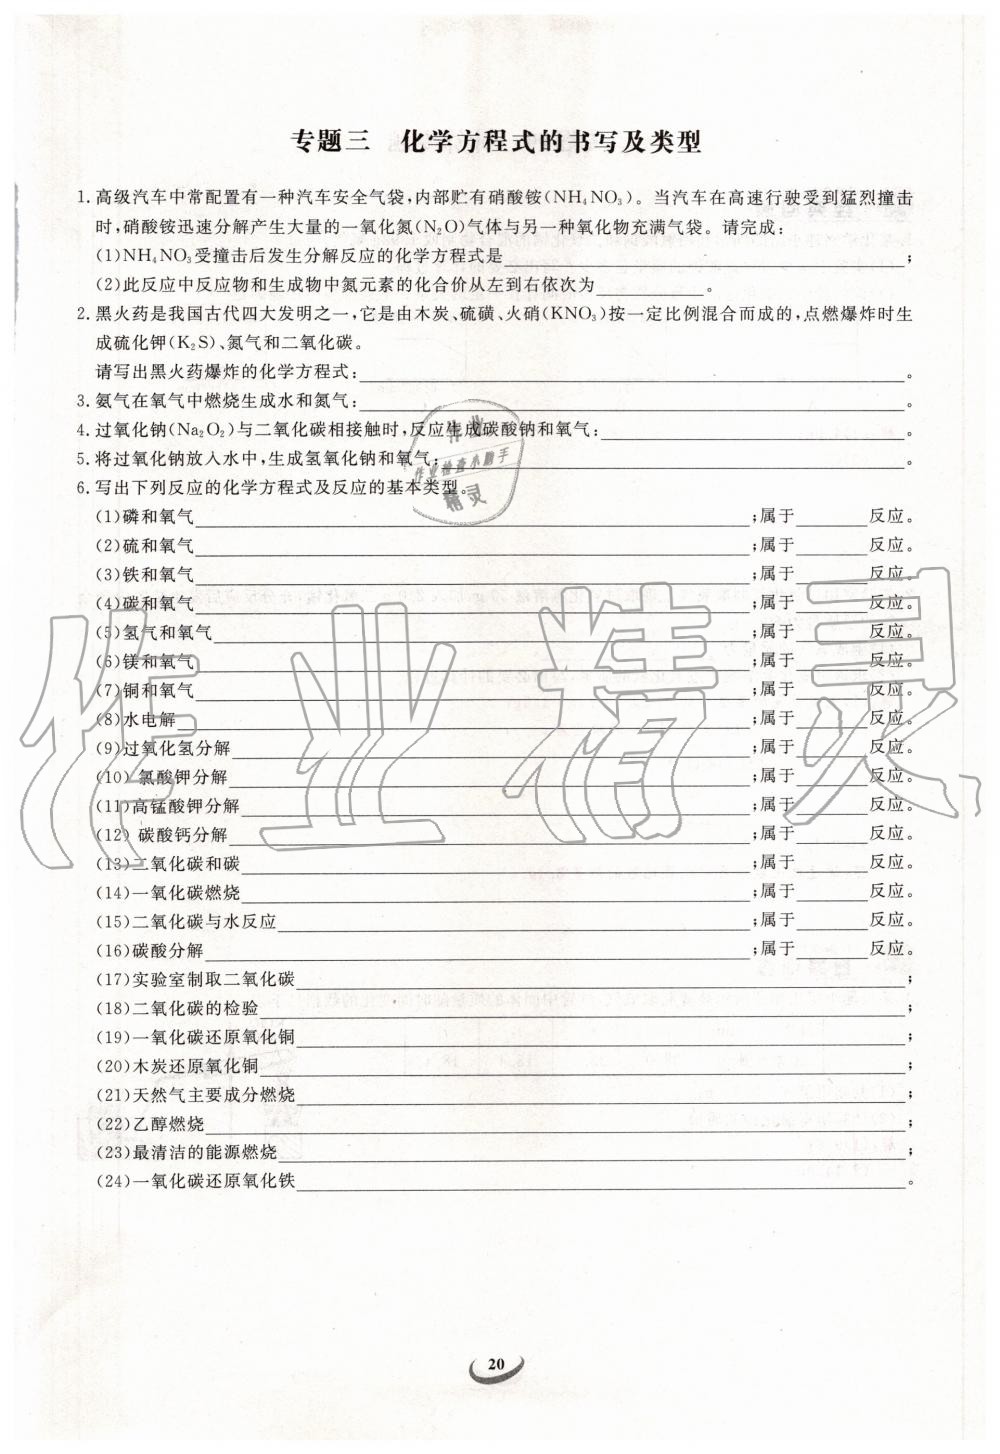 专题三 化学方程式的书写及类型
1.高级汽车中常配置有一种汽车安全气袋,内部贮有硝酸铵(NH₄NO₃)。当汽车在高速行驶受到猛烈撞击
时,硝酸铵迅速分解产生大量的一氧化氮(N₂O)气体与另一种氧化物充满气袋。请完成:
(1)NH₄NO₃受撞击后发生分解反应的化学方程式是____;
(2)此反应中反应物和生成物中氮元素的化合价从左到右依次为____。
2.黑火药是我国古代四大发明之一,它是由木炭、硫磺、火硝(KNO₃)按一定比例混合而成的,点燃爆炸时生
成硫化钾(K₂S)、氮气和二氧化碳。
请写出黑火药爆炸的化学方程式:____。
3.氨气在氧气中燃烧生成水和氮气:____。
4.过氧化钠(Na₂O₂)与二氧化碳相接触时,反应生成碳酸钠和氧气:____。
5.将过氧化钠放入水中,生成氢氧化钠和氧气:____。
6.写出下列反应的化学方程式及反应的基本类型。
(1)磷和氧气____;属于____反应。
(2)硫和氧气____;属于____反应。
(3)铁和氧气____;属于____反应。
(4)碳和氧气____;属于____反应。
(5)氢气和氧气____;属于____反应。
(6)镁和氧气____;属于____反应。
(7)铜和氧气____;属于____反应。
(8)水电解____;属于____反应。
(9)过氧化氢分解____;属于____反应。
(10)氯酸钾分解____;属于____反应。
(11)高锰酸钾分解____;属于____反应。
(12)碳酸钙分解____;属于____反应。
(13)二氧化碳和碳____;属于____反应。
(14)一氧化碳燃烧____;属于____反应。
(15)二氧化碳与水反应____;属于____反应。
(16)碳酸分解____;属于____反应。
(17)实验室制取二氧化碳____;
(18)二氧化碳的检验____;
(19)一氧化碳还原氧化铜____;
(20)木炭还原氧化铜____;
(21)天然气主要成分燃烧____;
(22)乙醇燃烧____;
(23)最清洁的能源燃烧____;
(24)一氧化碳还原氧化铁____。
作业
作业检查小助手
精灵
作业精灵
20